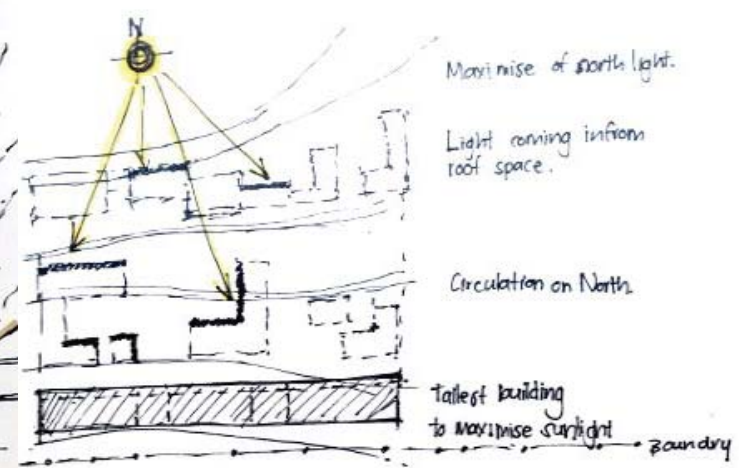 N
Maximise of north light.
Light coming in from
roof space.
Circulation on North
Tallest building
to maximise sunlight
Boundry